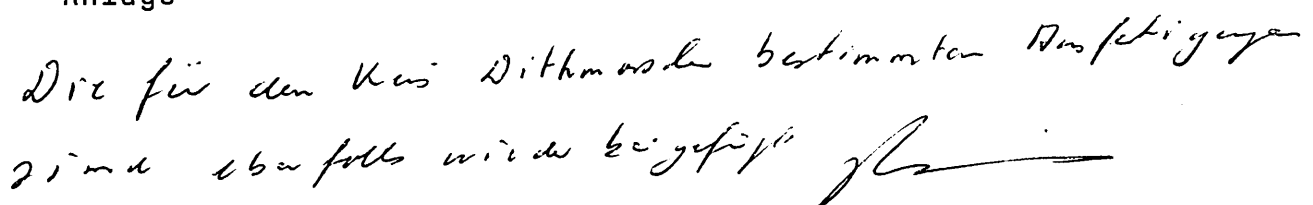 Anlage
Die für den Kreis Dithmarschen bestimmten Ausfertigungen
sind ebenfalls wieder beigefügt